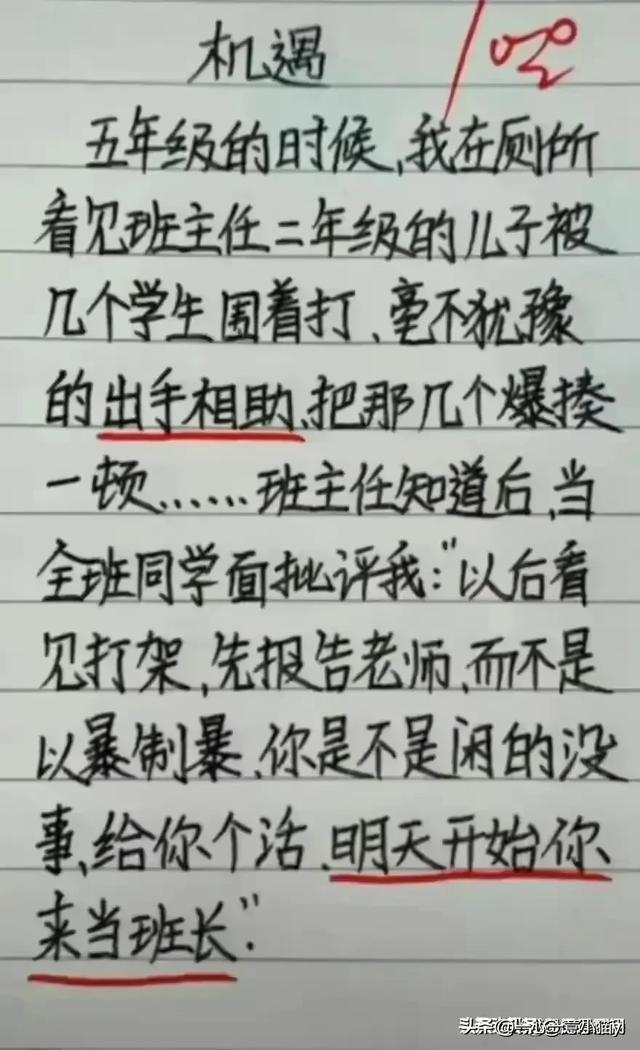 机遇
五年级的时候,我在厕所
看见班主任二年级的儿子被
几个学生围着打、毫不犹豫
的出手相助、把那几个爆揍
一顿……班主任知道后,当
全班同学面批评我:“以后看
见打架,先报告老师,而不是
以暴制暴、你是不是闲的没
事,给你个活、明天开始你
来当班长”.